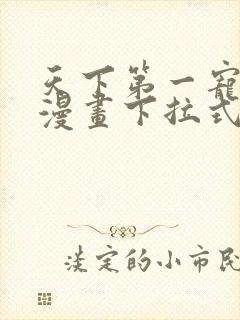 天下第一寵
漫畫下拉式
淡定的小市民